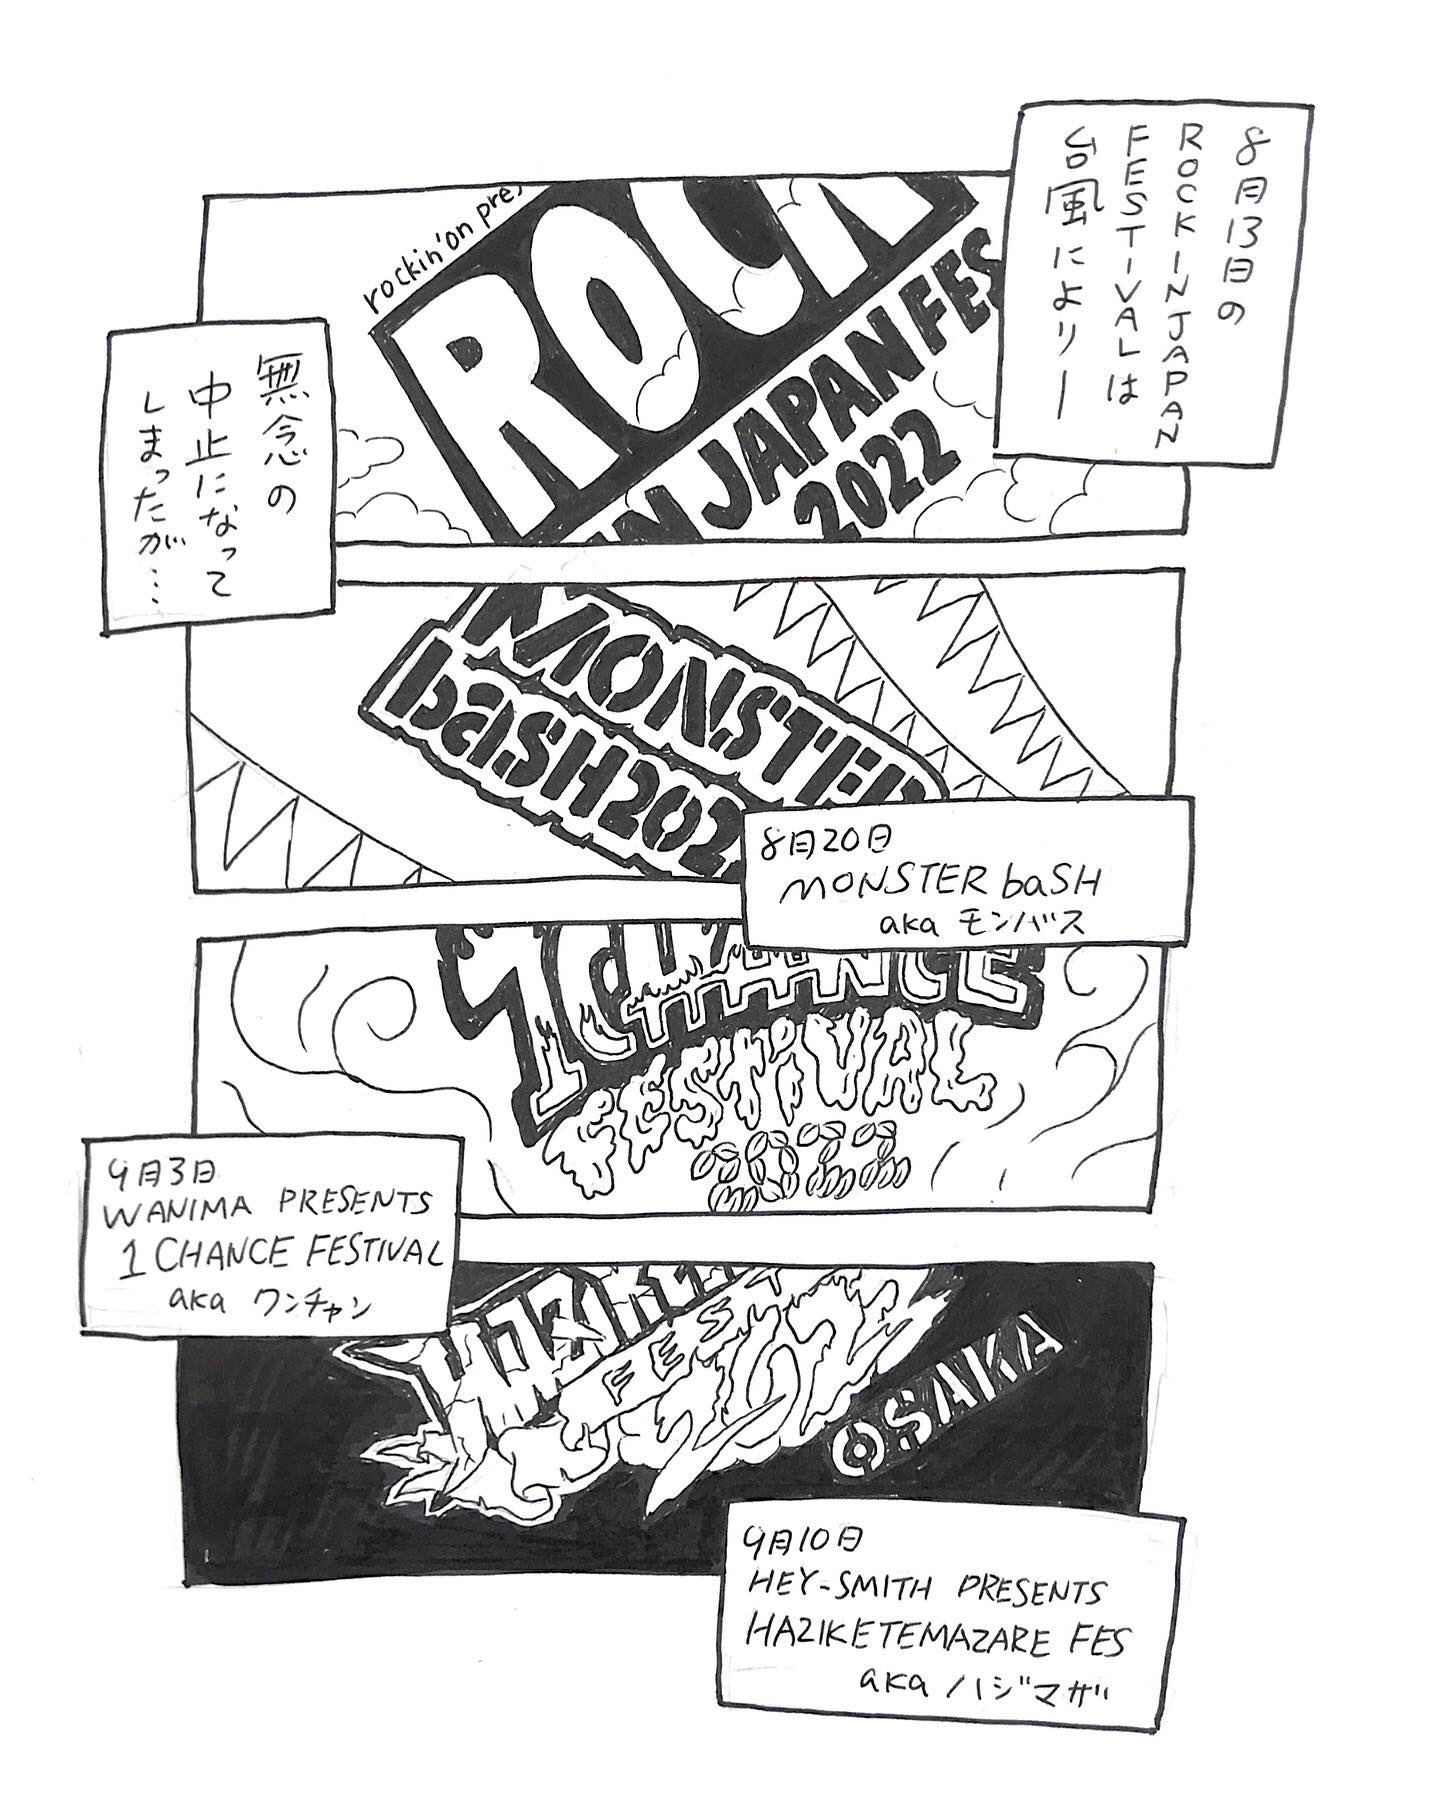 8月13日の
ROCK IN JAPAN
FESTIVALは
台風によりー
rockin'on pre
ROCK
IN JAPAN FES
2022
無念の
中止になって
しまったが…
MONSTER
baSH202
8月20日
MONSTER baSH
aka モンバス
1CHANCE
FESTiVAL
2022
9月3日
WANIMA PRESENTS
1 CHANCE FESTIVAL
aka ワンチャン
FES
202
OSAKA
9月10日
HEY-SMITH PRESENTS
HAZIKETEMAZARE FES
aka ハジマザ